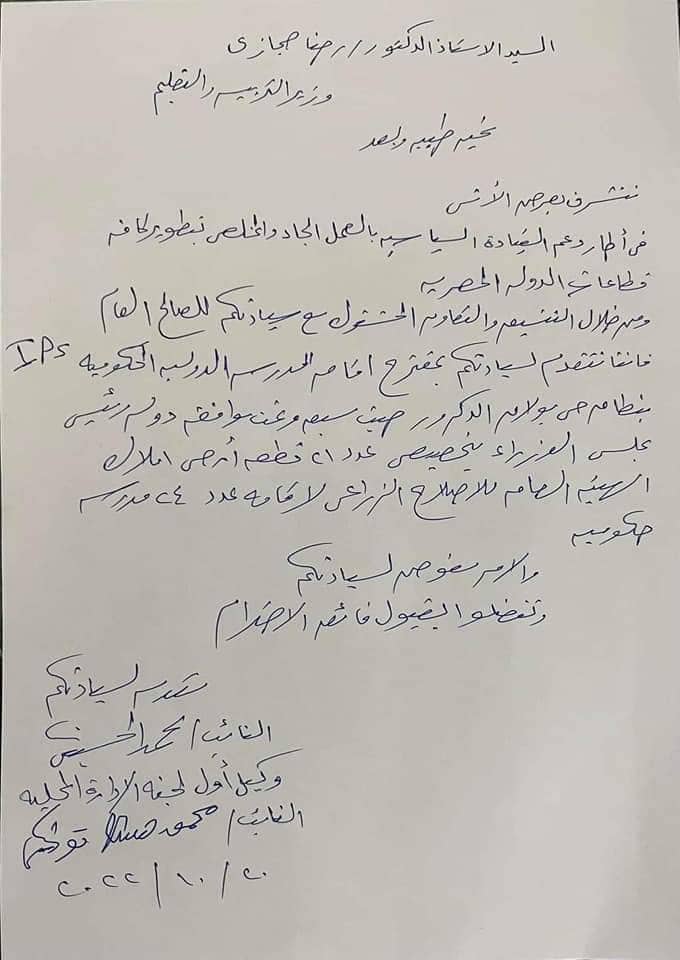 السيد الاستاذ الدكتور / رضا حجازى
وزير التربيه والتعليم
تحيه طيبه وبعد
نتشرف بعرض الأتى
فى أطار دعم القيادة السياسيه بالعمل الجاد والمخلص بتطوير كافه
قطاعات الدوله المصريه
ومن خلال التنسيق والتعاون المشترك مع سيادتكم للصالح العام
فاننا نتقدم لسيادتكم بمقترح اقامه المدرسه الدوليه الحكوميه IPS
بنطاق حى بولاق الدكرور حيث سبق وتمت موافقه دوله رئيس
مجلس الوزراء بتخصيص عدد ٢١ قطعه أرض املاك
الهيئه العامه للاصلاح الزراعى لاقامه عدد ٢٤ مدرسه
حكوميه
والامر مفوض لسيادتكم
وتفضلوا بقبول فائق الاحترام
مقدمه لسيادتكم
النائب / محمد الحسينى
وكيل أول لجنه الإدارة المحليه
النائب / محمود
٢٠ / ١٠ / ٢٠٢٢